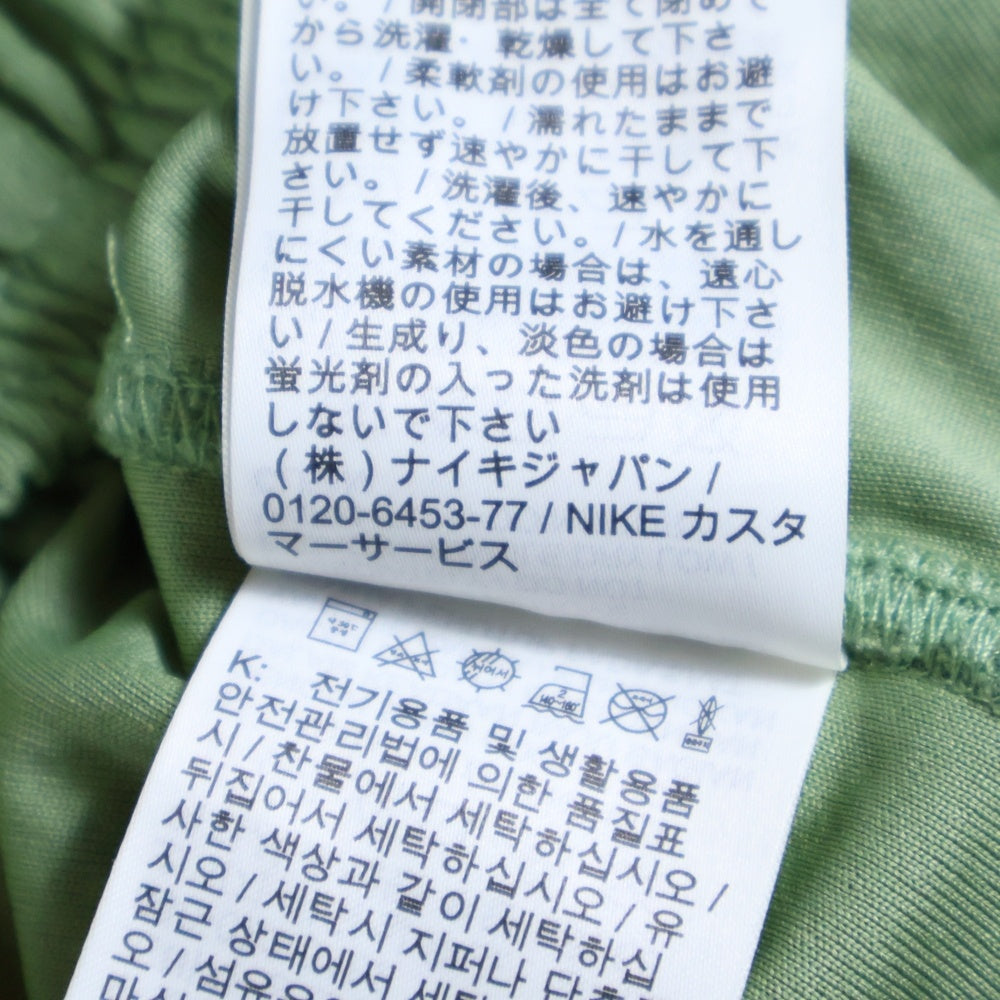 い。/開閉部は全て閉めて
から洗濯・乾燥して下さ
い。/柔軟剤の使用はお避
け下さい。/濡れたままで
放置せず速やかに干して下
さい。/洗濯後、速やかに
干してください。/水を通し
にくい素材の場合は、遠心
脱水機の使用はお避け下さ
い/生成り、淡色の場合は
蛍光剤の入った洗剤は使用
しないで下さい
(株)ナイキジャパン/
0120-6453-77 / NIKE カスタ
マーサービス
K: 전기용품 및 생활용품
안전관리법에 의한 품질표
시 / 찬물에서 세탁하십시오 /
뒤집어서 세탁하십시오 / 유
사한 색상과 같이 세탁하십
시오 / 세탁시 지퍼나 단추
잠근 상태에서
오 / 섬유